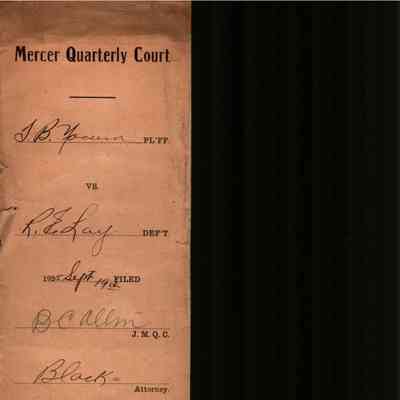 Mercer Quarterly Court
PL'FF.
VS.
R. E. Lay DEF'T.
Sept 19th FILED
B C Allin
J. M. Q. C.
Black
Attorney.